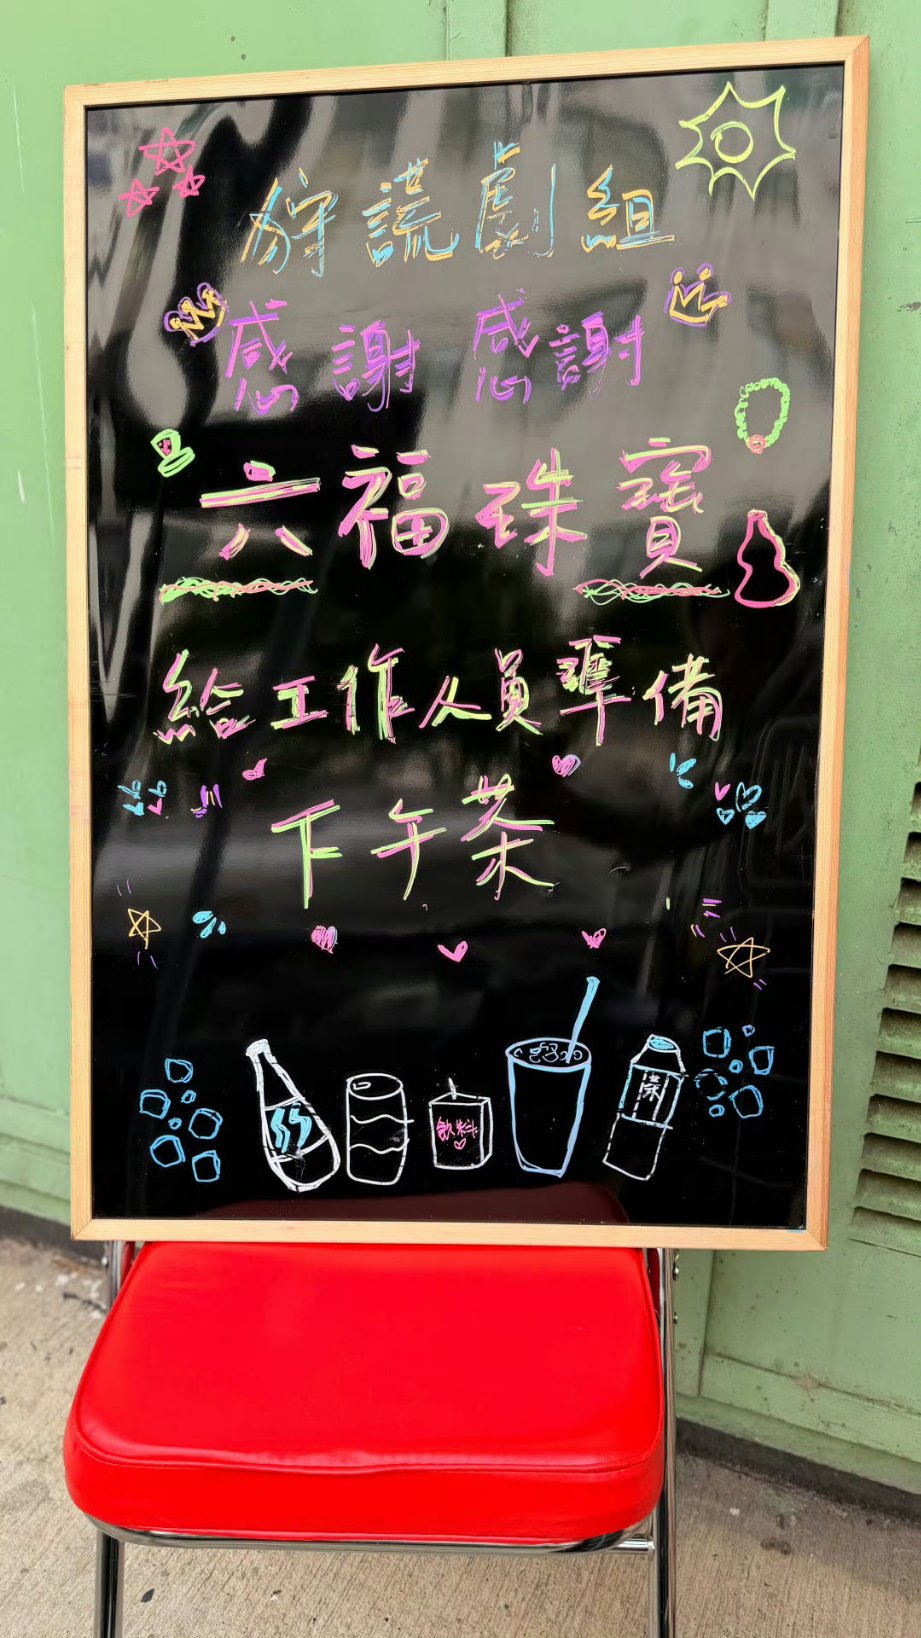 狩謊劇組
感謝 感謝
六福珠寶
給工作人員準備
下午茶
飲料
茶